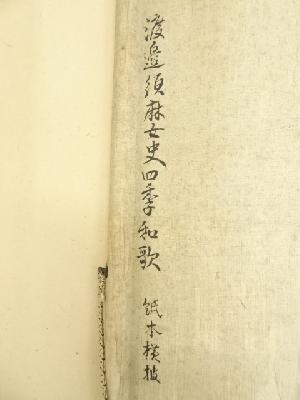 渡邉須麻女史四季和歌 紙本横披